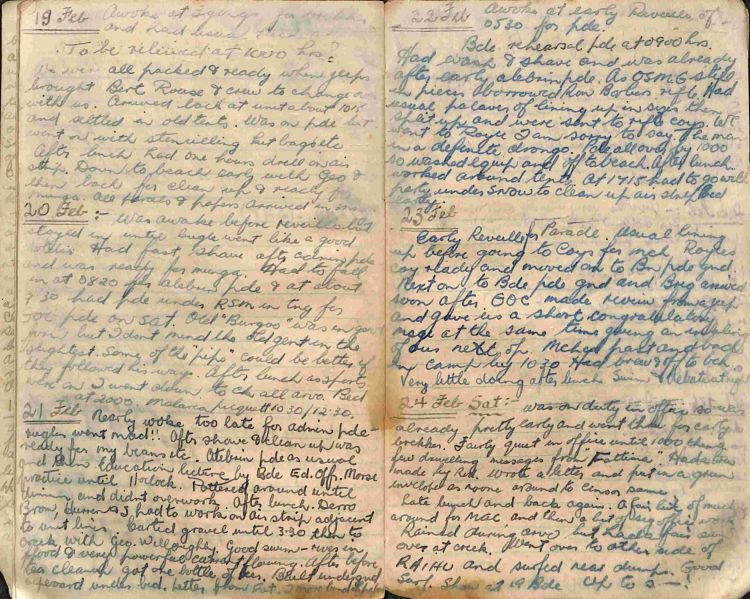 19 Feb Awoke at
and had usual
To be relieved at 1000 hrs?
We were all packed & ready when jeeps
brought Bert Rouse & crew to change over
with us. Arrived back at unit about 1015
and settled in old tents. Was on pde but
went on with stencilling kit bags etc
After lunch had one hours drill on air
strip. Down to beach early with Geo &
then back for clean up & ready for
munga. All parcels & papers arrived in
20 Feb :- Was awake before reveille but
stayed in until bugle went like a good
soldier. Had fast shave after pde
and was ready for munga. Had to fall
in at 0820 for atebrin pde & at about
930 had pde under RSM in try for
GOC pde on Sat. Old "Burgoo" was in good
form but I dont mind the old gent in the
slightest. Some of the "pips" could be better if
they followed his ways. After lunch as sports
were on I went down to ck all arvo. Bed
at 2000. Malaria picquet 1030/12.30.
21 Feb Nearly woke too late for admin pde
bugles went mad!! After shave & clean up was
ready for my beans etc. Atebrin pde as usual
and then Education lecture by Bde Ed. Offr. Morse
practice until 11 oclock. Pottered around until
dinner and didnt overwork. After lunch. Derro
Bron, & I had to work on air strip adjacent
to unit lines. Carted gravel until 3-30 then to
creek with Geo. Willoughby. Good swim – river in
flood & very powerful current flowing. After before
tea cleanup got one bottle of beer. Built underground
cupboard under bed. Letter from Pat.
22 Feb Awoke at early Reveille of
0530 for pde.
Bde rehearsal pde at 0900 hrs.
Had wash & shave and was already
after early atebrin pde. As OSMG still
in pieces borrowed Ron Bowers rifle. Had
usual palaver of lining up in sigs then
split up and were sent to rifle coys. WE
went to Royce I am sorry to say. The man
is a definite drongo. Pde all over by 1000
so washed equip and off to beach. After lunch
worked around tent. At 1715 had to go with
party under SNOW to clean up air strip. Bed
early.
23 Feb
Early Reveille for Parade. Usual lining
up before going to Coys for mch. Royces
coy ready and moved on to Bn pde gnd
Next on to Bde pde gnd and Brig arrived
soon after. GOC made review from a jeep
and gave us a short congratulatory
mesge at the same time giving an inkling
of our next op. Mched past and back
in camp by 1030. Had brew & off to bch.
Very little doing after lunch. Swim & debate at nigh
24 Feb Sat :- was on duty in office so was
already pretty early and went thro for early
brekker. Fairly quiet in office until 1000 then a
few dongeless messages from "Fattina". Had tea
made by Rex. Wrote a letter and put in a green
envelope as no one around to censor same.
Late lunch and back again. A fair bit of muck
around for MAC and then a bit of sig office work
Rained during arvo but had a fair swim
over at creek. Went over to other side of
RAIHU and surfed near dumps. Good
Surf. Show at 19 Bde up to